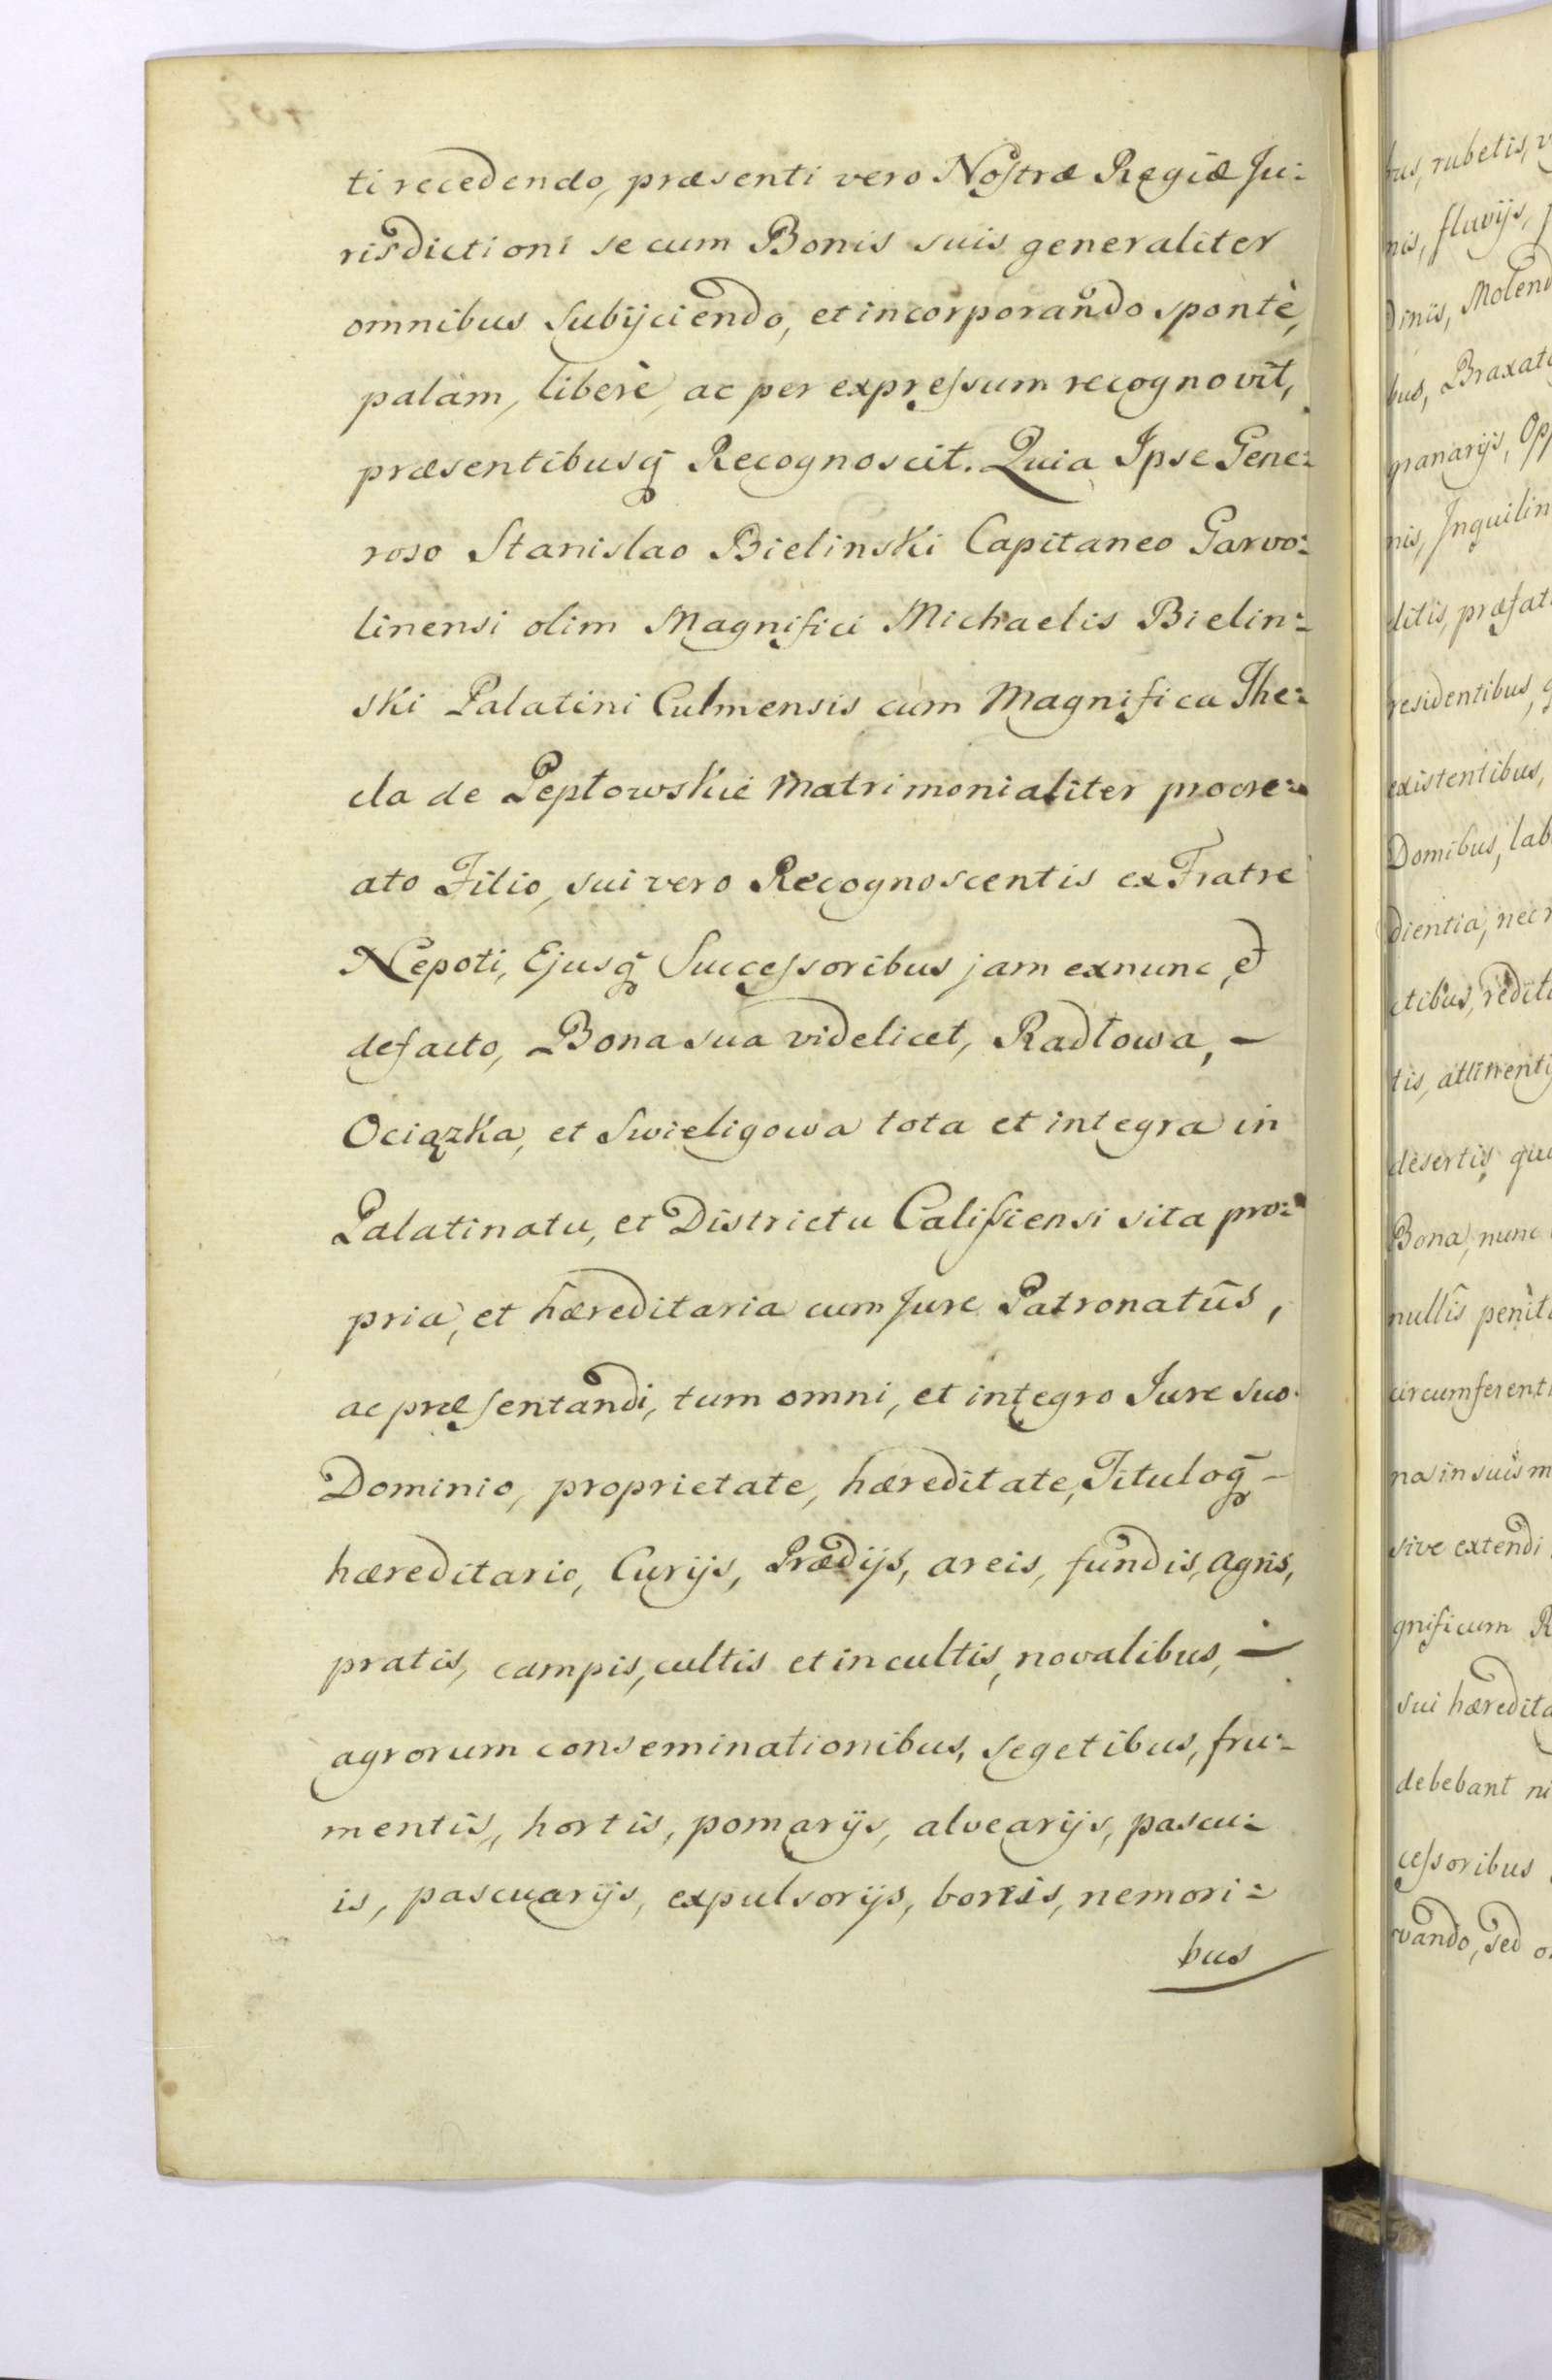 ti recedendo, præsenti vero Nostræ Regiæ Ju:
risdictioni se cum Bonis suis generaliter
omnibus Subijciendo, et incorporando spontè,
palàm, liberè, ac per expressum recognovit,
præsentibusq̃ Recognoscit. Quia Ipse Gene:
roso Stanislao Bielinski Capitaneo Garvo:
linensi olim Magnifici Michaelis Bielin:
ski Palatini Culmensis cum Magnifica The:
cla de Pepłowskie Matrimonialiter procre:
ato Filio, sui vero Recognoscentis ex Fratre
Nepoti, Ejusq̃ Successoribus jam exnunc, et
defacto, Bona sua videlicet, Radłowa, –
Ociązka, et Swieligowa tota et integra in
Palatinatu, et Districtu Calissiensi sita pro:
pria, et hæreditaria cum Jure Patronatûs,
ac præsentandi, tum omni, et integro Jure suo
Dominio, proprietate, hæreditate, Tituloq̃ –
hæreditario, Curijs, Prædijs, areis, fundis, agris,
pratis, campis, cultis et incultis, novalibus, –
agrorum conseminationibus, segetibus, fru:
mentis, hortis, pomarijs, alvearijs, pascu:
is, pascuarijs, expulsorijs, borris, nemori:
bus
bus, rubetis,
nis, fluvijs,
dinis, Molend
bus, Braxat
granarijs, Opp
nis, Inquilin
ditis, præfat
residentibus,
existentibus,
Domibus, lab
dientia, nec
ctibus, reddit
tis, attinenti
desertis, qu
Bona, nunc
nullis penit
circumferent
na in suis m
sive extendi
gnificum R
sui hæredita
debebant ni
cessoribus
vando, sed o